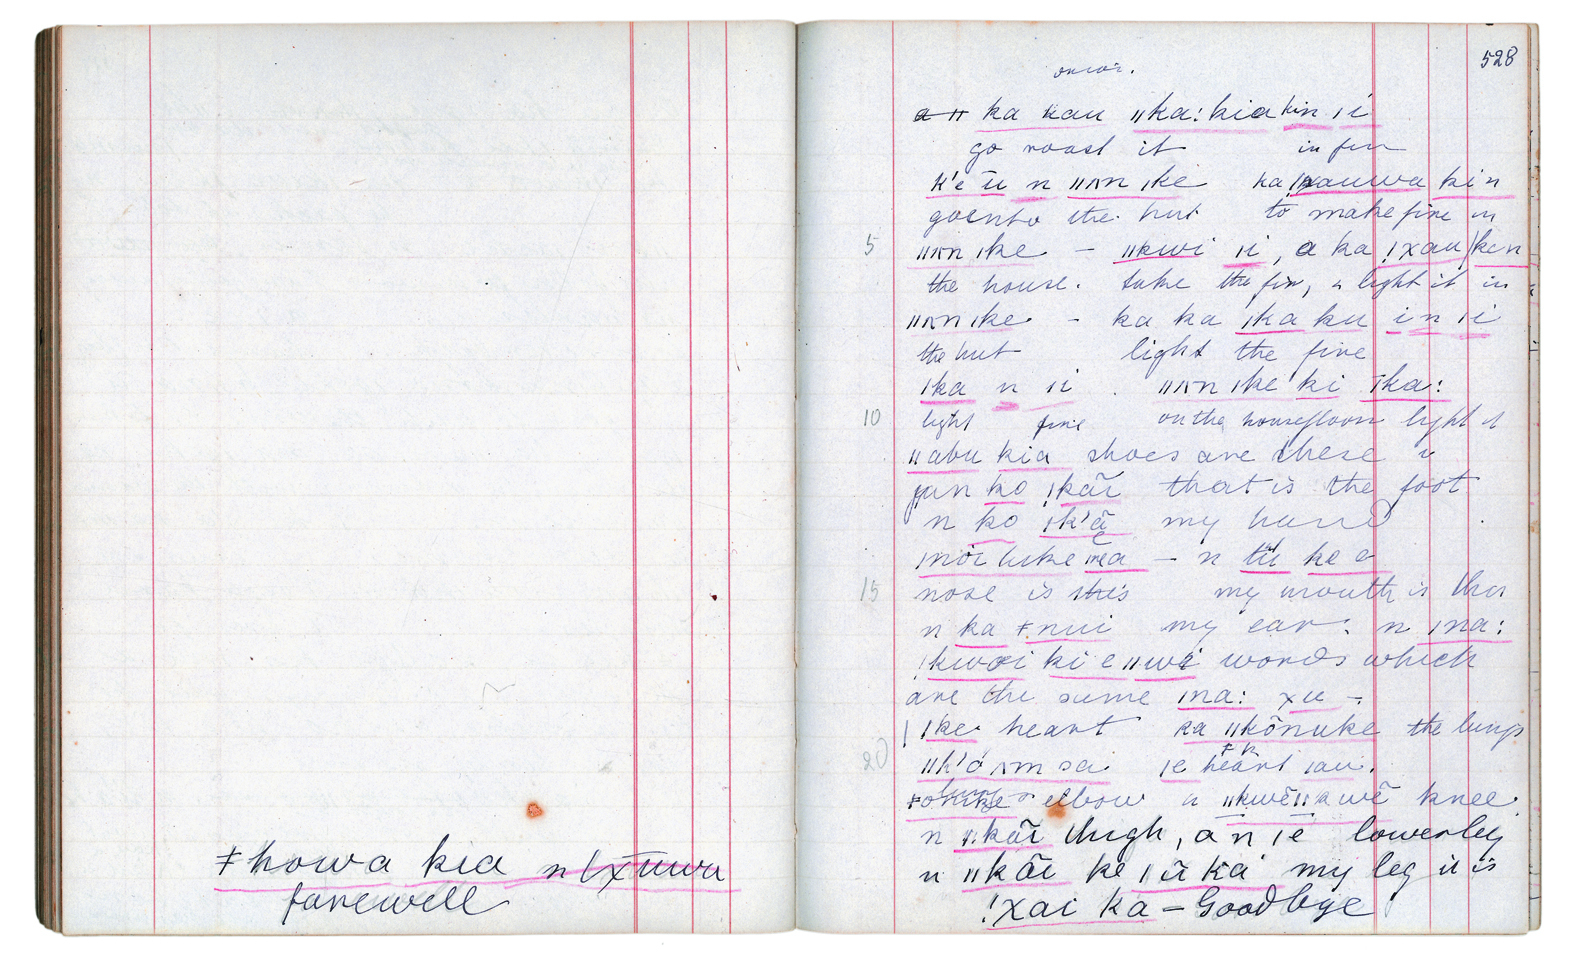 ǂhowa kia n /xuwa
farewell
528
ka kau ǁka: kia kin /i
go roast it in fire
k'e ū n ǁʌn /ke ka /xauwa kin
go into the hut to make fire in
5 ǁʌn /ke – ǁkwi /i, a ka !xau /kin
the house. take the fire, & light it in
ǁʌn /ke – ka ka /ka ku in /i
the hut light the fire
/ka n /i ǁʌn /ke ki /ka:
10 light fire on the house floor light it
ǁabu kia shoes are these
n ko !kāī that is the foot
n ko /k'ā my hand
– n tu ke e
15 nose is this my mouth is that
n ka ǂnui my ear: n /na:
!kwai ki e ǁwi words which
are the same /na: xu –
/ke heart ka ǁkōnuke the lungs
20 ǁk'ó ʌm sa /e heart /au.
elbow ǁkwēǁkwē knee
n ǁkāī thigh, a n /e lowerleg
n ǁkāī ke /ū ka my leg it is
!xai ka – Goodbye